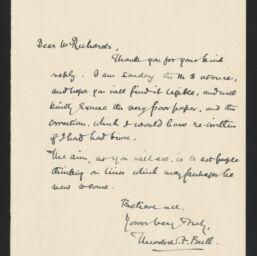 Dear Mr Richards,
Thank you for your kind
reply. I am sending the MS at once,
and hope you will find it legible, and will
kindly excuse the very poor paper, and the
corrections, which I would have re-written
if I had had time.
The aim, as you will see, is to set people
thinking on lines which may perhaps be
new to some.
Believe me,
Yours very truly,
Theodora A. Bull